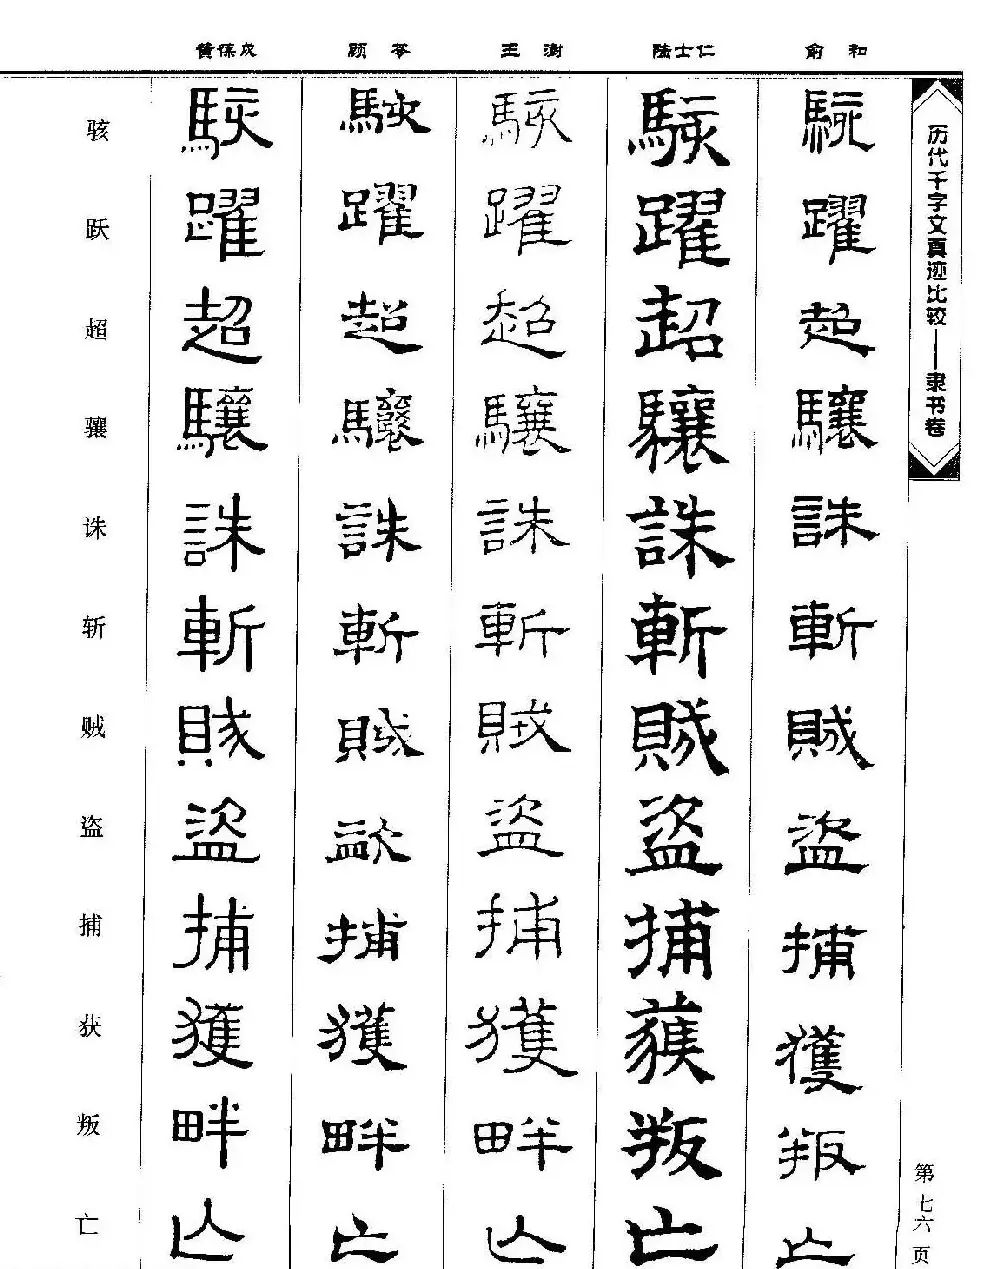 俞和
陆士仁
王澍
顾苓
黄葆戉
历代千字文真迹比较——隶书卷
駭躍超驤誅斬賊盜捕獲叛亡
駭躍超驤誅斬賊盜捕獲叛亡
駭躍超驤誅斬賊盜捕獲畔亡
駭躍超驤誅斬賊盜捕獲畔亡
駭躍超驤誅斬賊盜捕獲畔亡
骇跃超骧诛斩贼盗捕获叛亡
第七六页